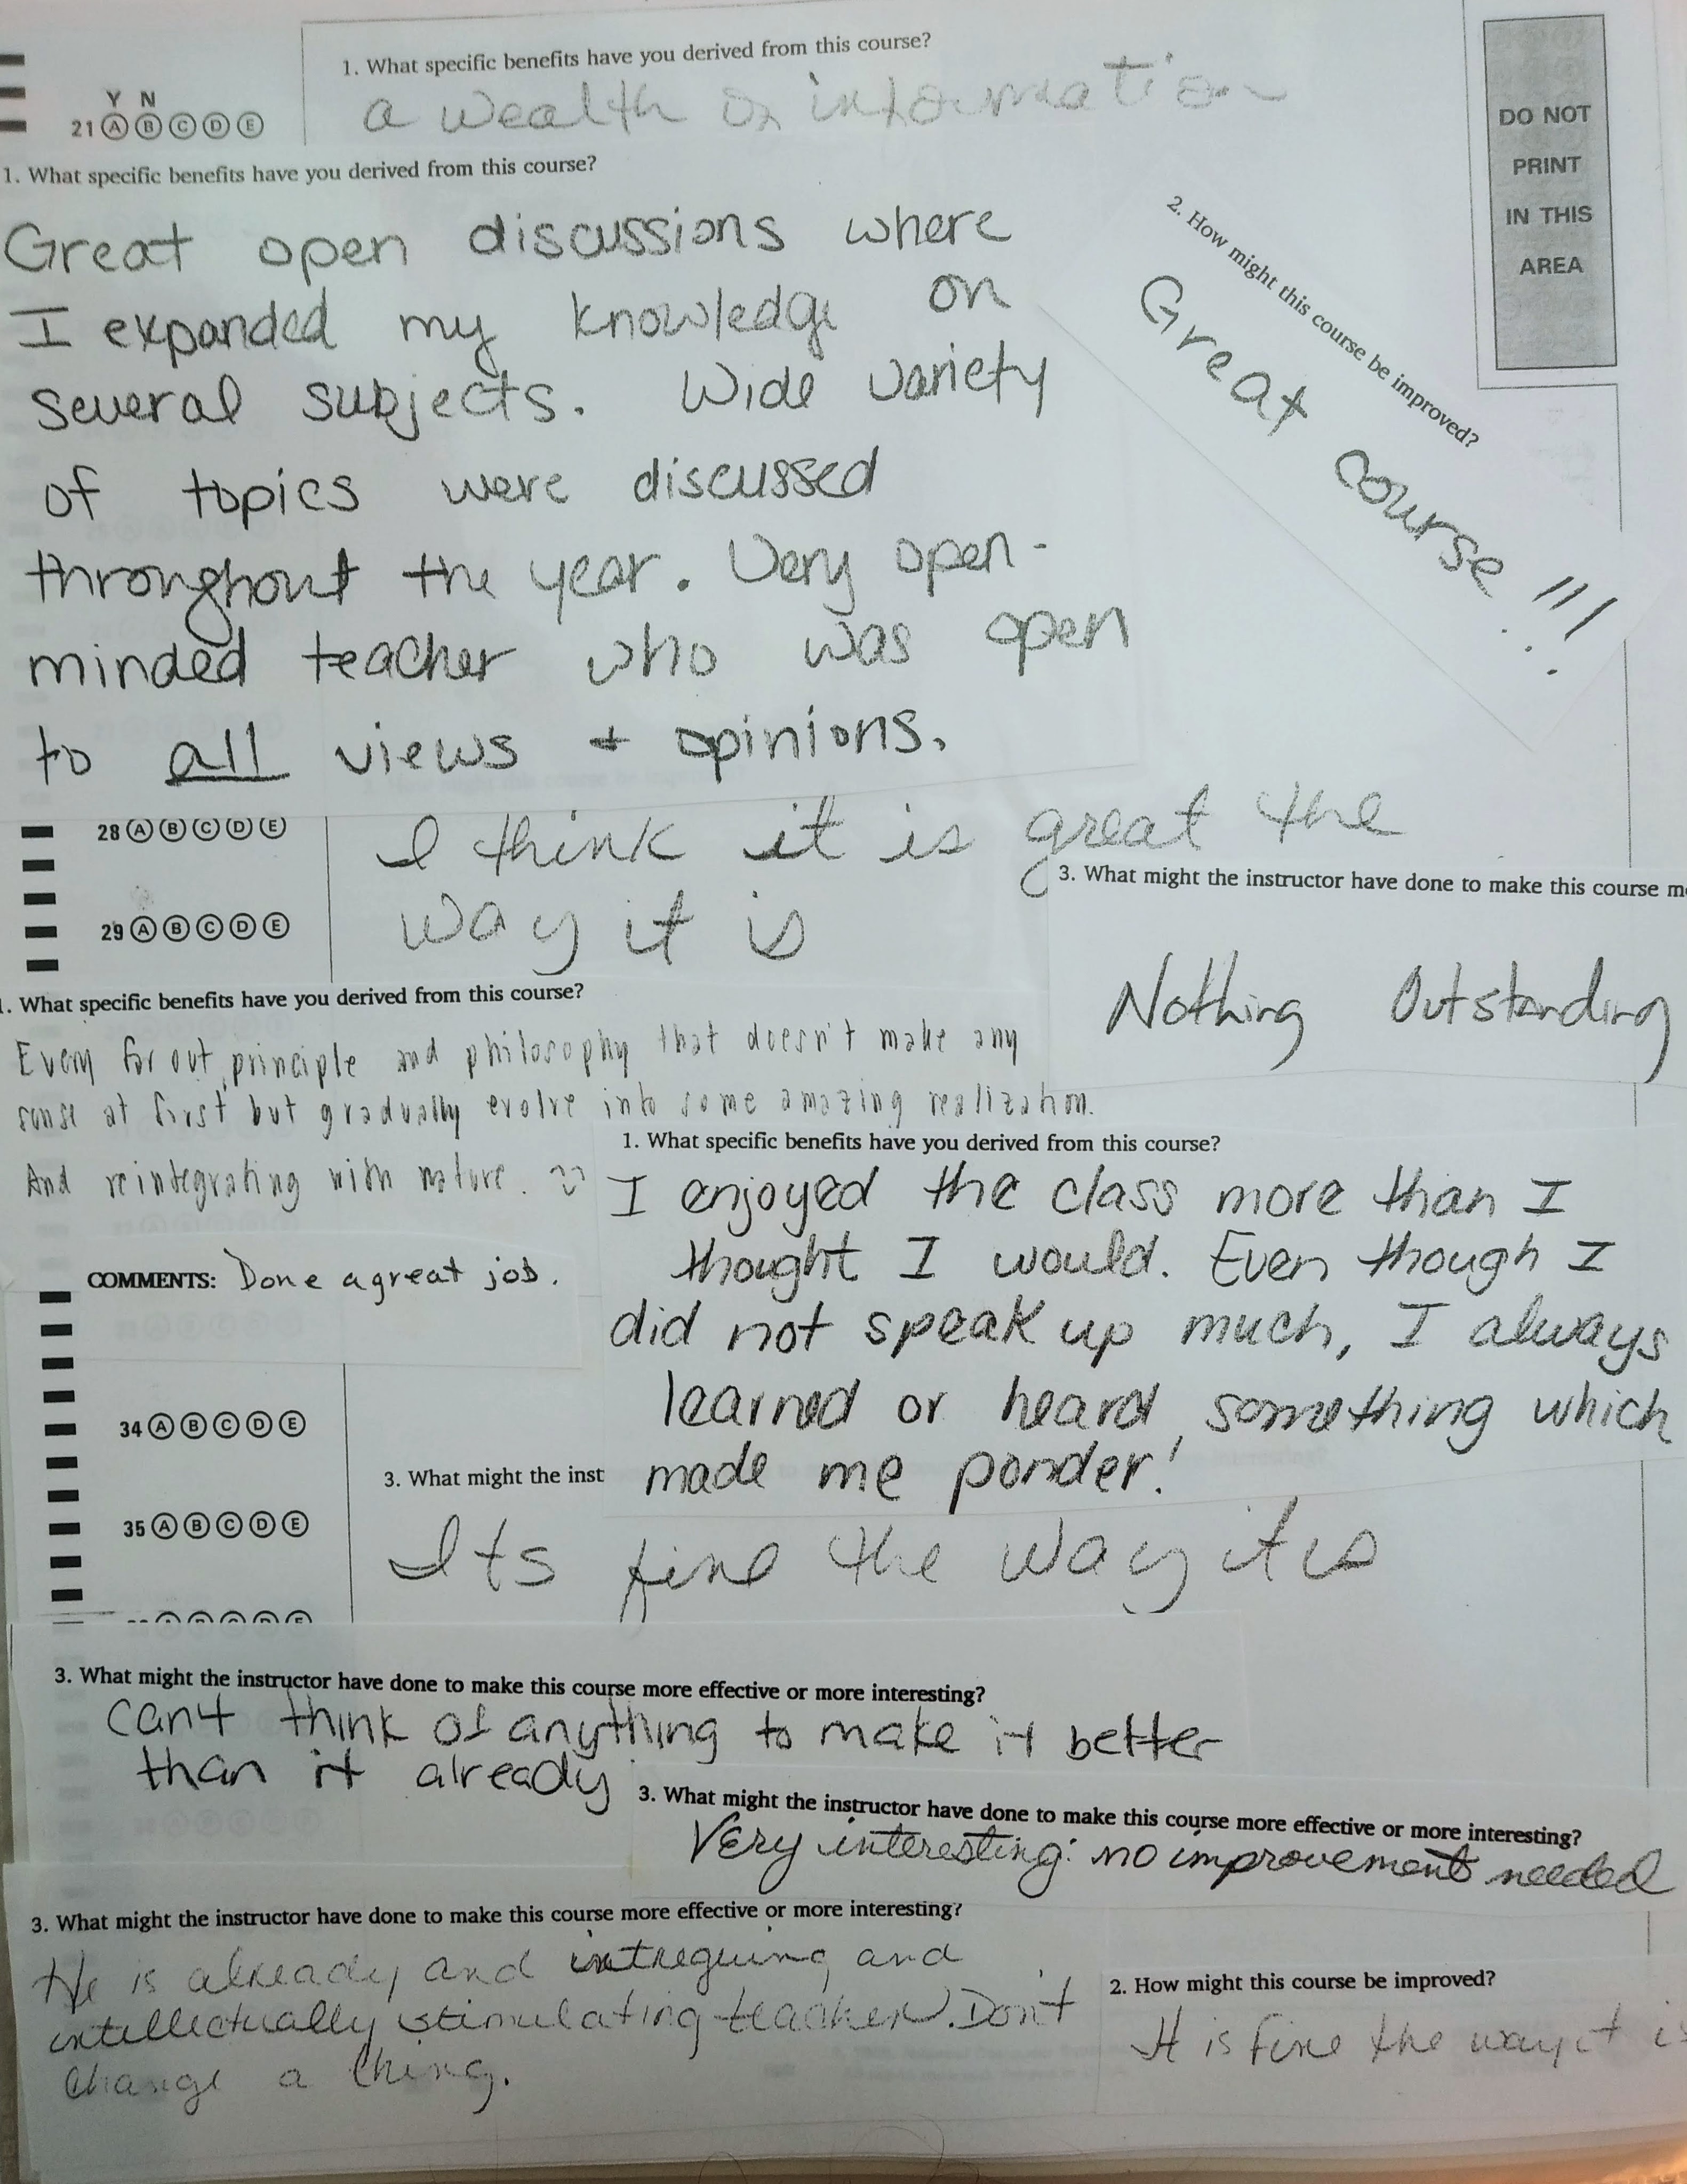 1. What specific benefits have you derived from this course?
Y N
21 A B C D E
a wealth of information
1. What specific benefits have you derived from this course?
Great open discussions where
I expanded my knowledge on
several subjects. Wide variety
of topics were discussed
throughout the year. Very open-
minded teacher who was open
to all views + opinions.
DO NOT
PRINT
IN THIS
AREA
2. How might this course be improved?
Great course!!!
28 A B C D E
I think it is great the
29 A B C D E
way it is
3. What might the instructor have done to make this course m
Nothing Outstanding
1. What specific benefits have you derived from this course?
Every far out principle and philosophy that doesn't make any
sense at first but gradually evolve into some amazing realization.
And reintegrating with nature.
1. What specific benefits have you derived from this course?
I enjoyed the class more than I
thought I would. Even though I
did not speak up much, I always
learned or heard something which
made me ponder!
COMMENTS: Done a great job.
34 A B C D E
3. What might the inst
35 A B C D E
Its fine the way it is
3. What might the instructor have done to make this course more effective or more interesting?
can't think of anything to make it better
than it already
3. What might the instructor have done to make this course more effective or more interesting?
Very interesting: no improvements needed
3. What might the instructor have done to make this course more effective or more interesting?
He is already and intreguing and
intellectually stimulating teacher. Don't
Change a thing.
2. How might this course be improved?
It is fine the way it is